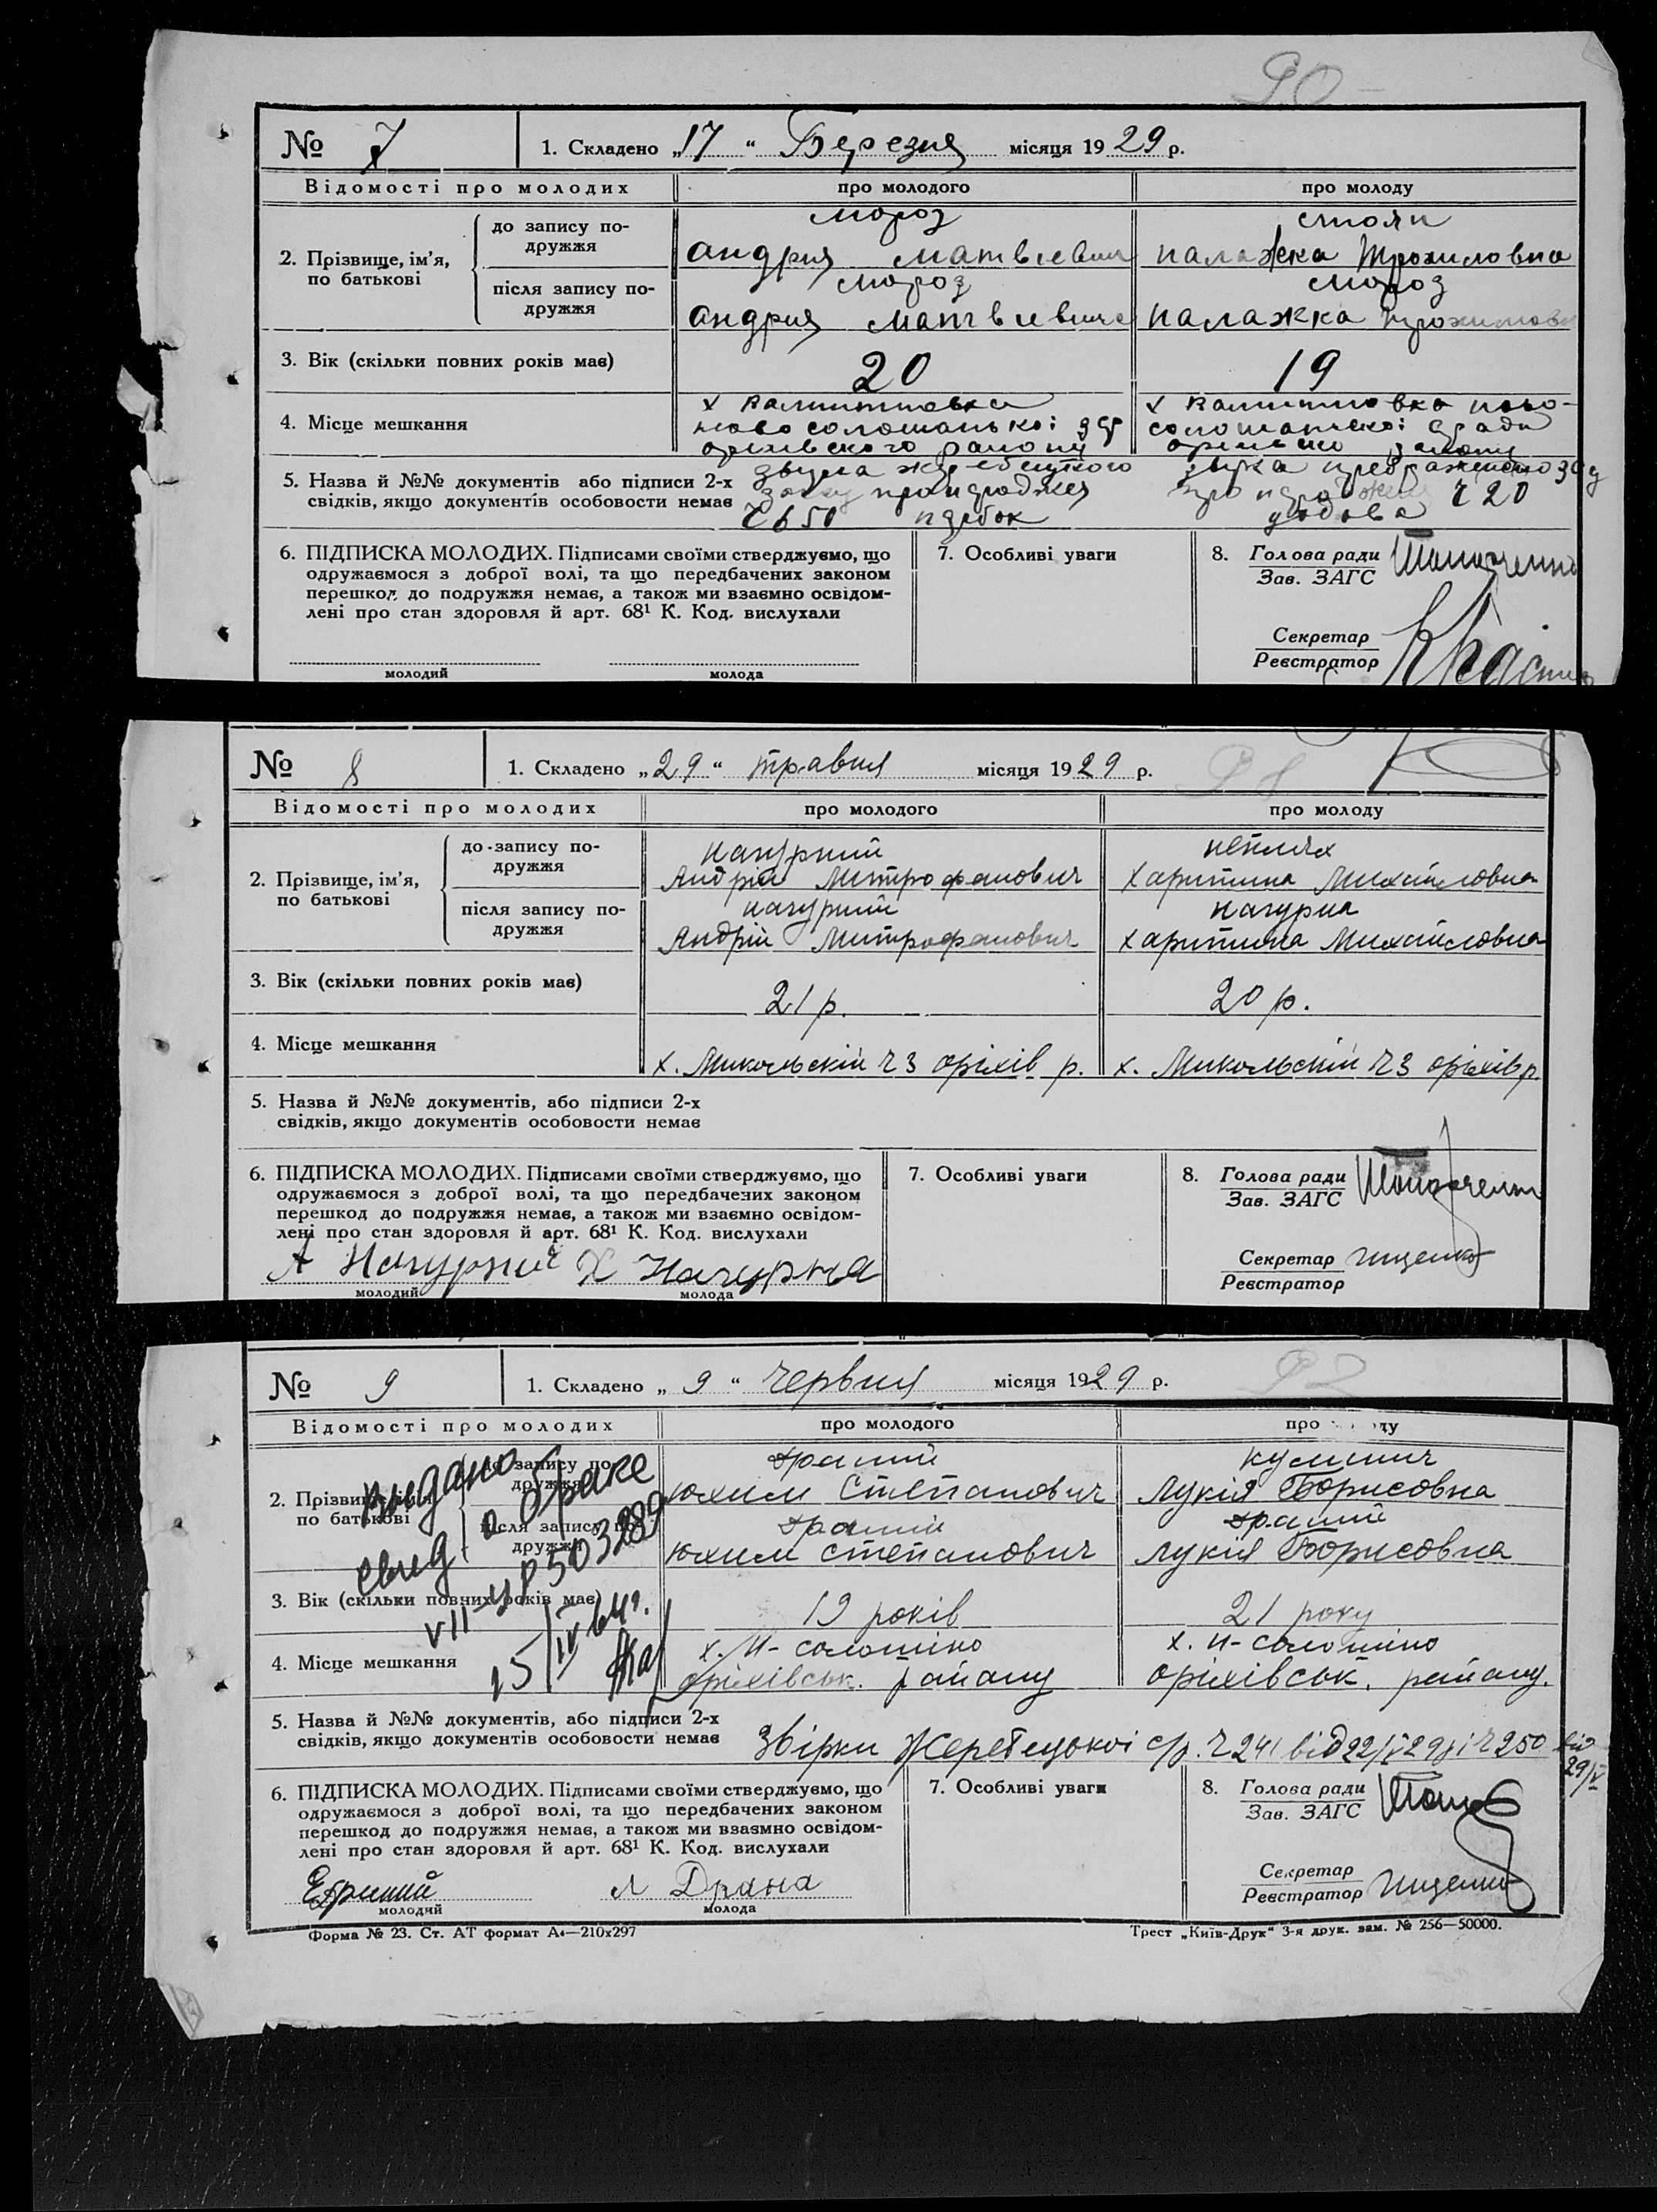 90
№ 7
1. Складено „17“ Березня місяця 1929 р.
Відомості про молодих про молодого про молоду
2. Прізвище, ім’я, по батькові
до запису подружжя
мороз
андрия матвіевич
стоян
палажка Трохимовна
після запису подружжя
мороз
андрия матвиевича
мороз
палажка трохимовн
3. Вік (скільки повних років має) 20 19
4. Місце мешкання
х
ново соломанькоі
оріхівского району
х
5. Назва й №№ документів або підписи 2-х
свідків, якщо документів особовости немає
ч 650 парубок
ч 20
6. ПІДПИСКА МОЛОДИХ. Підписами своїми стверджуємо, що
одружаємося з доброї волі, та що передбачених законом
перешкод до подружжя немає, а також ми взаємно освідом-
лені про стан здоровля й арт. 68¹ К. Код. вислухали
молодий молода
7. Особливі уваги
8. Голова ради
Зав. ЗАГС
Секретар
Реєстратор
№ 8
1. Складено „29“ травня місяця 1929 р.
91
Відомості про молодих про молодого про молоду
2. Прізвище, ім’я, по батькові
до запису подружжя
Андрій Митрофанович
Харитина Михайловна
після запису подружжя
Андрій Митрофанович
Харитина Михайловна
3. Вік (скільки повних років має) 21 р. 20 р.
4. Місце мешкання
х. Микольскій ч 3 оріхів р. х. Микольскій ч 3 оріхів р.
5. Назва й №№ документів, або підписи 2-х
свідків, якщо документів особовости немає
6. ПІДПИСКА МОЛОДИХ. Підписами своїми стверджуємо, що
одружаємося з доброї волі, та що передбачених законом
перешкод до подружжя немає, а також ми взаємно освідом-
лені про стан здоровля й арт. 68¹ К. Код. вислухали
молодий молода
7. Особливі уваги
8. Голова ради
Зав. ЗАГС
Секретар Ищенко
Реєстратор
№ 9
1. Складено „9“ червня місяця 1929 р.
92
Відомості про молодих про молодого про молоду
2. Прізвище, ім’я, по батькові
до запису подружжя
Драний
Юхим Степанович
Кулинич
Лукія Борисовна
після запису подружжя
Драний
Юхим Степанович
Драний
Лукія Борисовна
Выдано
свид. о браке
VII-УР 503289
15/IV 64г.
3. Вік (скільки повних років має) 19 років 21 року
4. Місце мешкання
х. Н-Солошино
оріхівськ. району
х. Н-Солошино
оріхівськ. району.
5. Назва й №№ документів, або підписи 2-х
свідків, якщо документів особовости немає
Звірки Жеребецькоі с/р. ч 241 від 22/V 29 р і ч 250 від
29/V
6. ПІДПИСКА МОЛОДИХ. Підписами своїми стверджуємо, що
одружаємося з доброї волі, та що передбачених законом
перешкод до подружжя немає, а також ми взаємно освідом-
лені про стан здоровля й арт. 68¹ К. Код. вислухали
Л Драна
молодий молода
7. Особливі уваги
8. Голова ради
Зав. ЗАГС
Секретар Ищенко
Реєстратор
Форма № 23. Ст. АТ формат А₄—210x297
Трест „Київ-Друк“ 3-я друк. зам. № 256—50000.